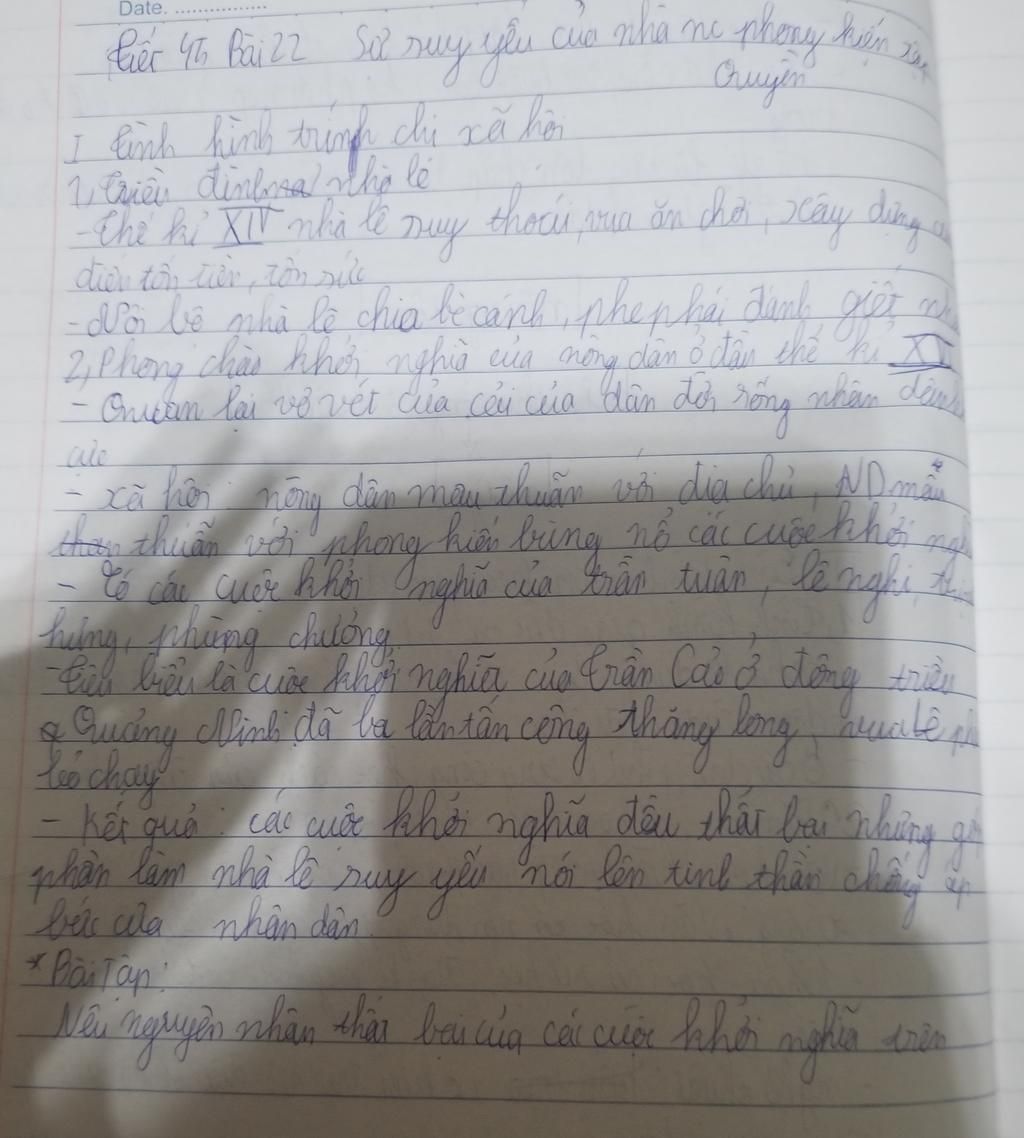 Date. ................
tiết 45 Bài 22 Sự suy yếu của nhà nc phong kiến tập
Quyền
I tình hình trính chị xã hôi
1, triều đình nhà lê
- thế kỉ XIV nhà lê suy thoái, vua ăn chơi, xây dựng
điên tốn tiền, tốn sức
- Nôi bô nhà lê chia bè cánh, phe phái đánh giết
2, Phong chào khởi nghĩa của nông dân ở đầu thế kỉ
- Quan lại vơ vét của cải của dân đời sống nhân dân
cưc
- xã hôi nông dân mâu thuẫn với địa chủ, ND mâu
thuẫn với phong kiến bùng nổ các cuôc khởi
- Có các cuôc khởi nghĩa của trần tuân, lê nghi,
hưng, phùng chương
- tiêu biểu là cuôc khởi nghĩa của trần Cảo ở đông triều
Quảng Ninh đã ba lần tấn công thăng long, vua lê
bỏ chạy
- Kết quả: các cuôc khởi nghĩa đều thất bại nhưng
phần làm nhà lê suy yếu nói lên tinh thần chống áp
bức của nhân dân.
* Bài Tập:
Nêu nguyên nhân thất bại của các cuôc khởi nghĩa trên